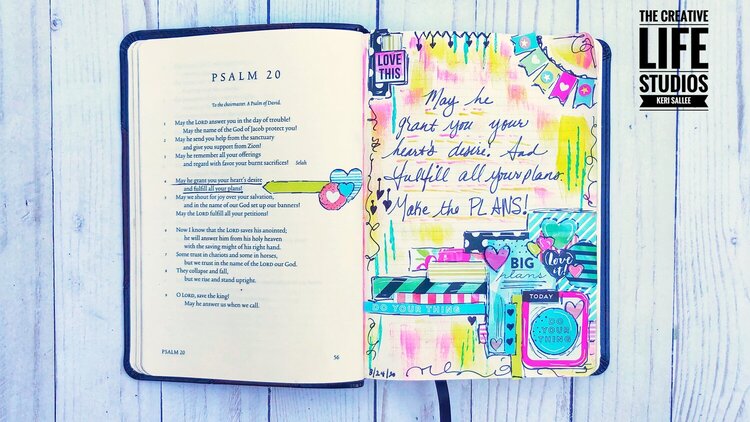 THE CREATIVE
LIFE
STUDIOS
KERI SALLEE
PSALM 20
To the choirmaster. A Psalm of David.
1 May the LORD answer you in the day of trouble!
May the name of the God of Jacob protect you!
2 May he send you help from the sanctuary
and give you support from Zion!
3 May he remember all your offerings
and regard with favor your burnt sacrifices! Selah
4 May he grant you your heart's desire
and fulfill all your plans!
5 May we shout for joy over your salvation,
and in the name of our God set up our banners!
May the LORD fulfill all your petitions!
6 Now I know that the LORD saves his anointed;
he will answer him from his holy heaven
with the saving might of his right hand.
7 Some trust in chariots and some in horses,
but we trust in the name of the LORD our God.
8 They collapse and fall,
but we rise and stand upright.
9 O LORD, save the king!
May he answer us when we call.
PSALM 20
56
LOVE
THIS
May he
grant you your
heart's desire. And
fulfill all your plans.
Make the PLANS!
BIG
plans
love
it!
DO YOUR THING
TODAY
DO
YOUR
THING
8/24/20